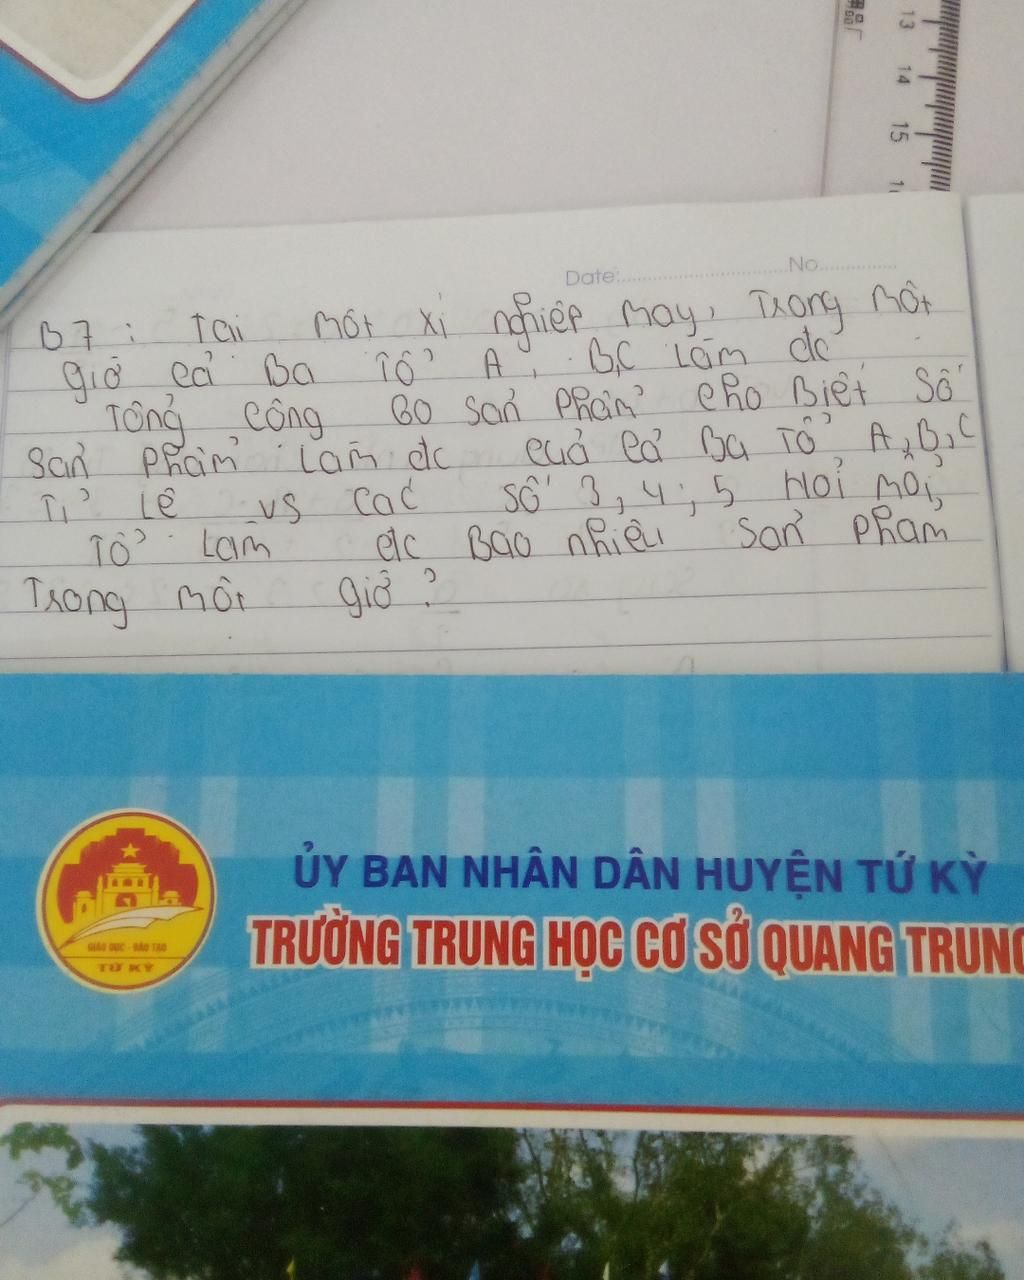 13
14
15
Date: No
B7: Tại một xí nghiệp may, Trong một
giờ cả Ba Tổ A, B,C Làm đc
Tổng cộng 60 sản phẩm cho Biết số
sản phẩm Làm đc của cả Ba Tổ A,B,C
Tỉ lệ vs các số 3,4,5 Hỏi mỗi
Tổ Làm đc Bao nhiêu sản phẩm
Trong một giờ?
ỦY BAN NHÂN DÂN HUYỆN TỨ KỲ
TRƯỜNG TRUNG HỌC CƠ SỞ QUANG TRUNG
GIÁO DỤC - ĐÀO TẠO
TỨ KỲ